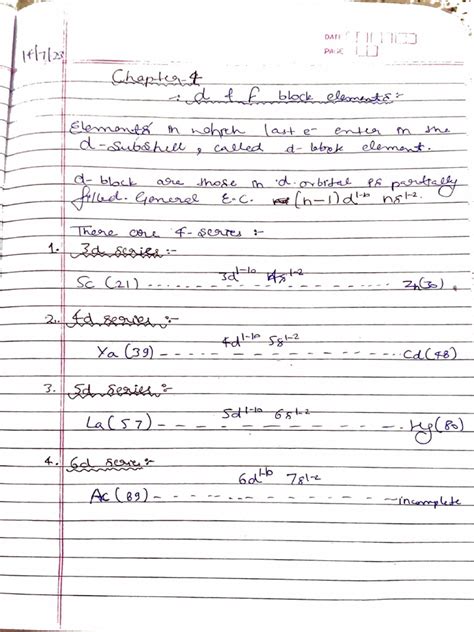 14/7/23
DATE
PAGE
Chapter-4
:- d f f block elements:-
Elements in which last e- enter in the
d-subshell, called d-block element.
d-block are those in d orbital is partially
filled. General E.C. (n-1)d¹⁻¹⁰ ns¹⁻².
There are 4-series :-
1. 3d series:-
3d¹⁻¹⁰ 4s¹⁻²
Sc (21) ------------ Zn(30).
2. 4d series:-
4d¹⁻¹⁰ 5s¹⁻²
Ya (39) ------------ Cd(48)
3. 5d series:-
5d¹⁻¹⁰ 6s¹⁻²
La(57) ------------ Hg(80)
4. 6d series:-
6d¹⁻¹⁰ 7s¹⁻²
Ac(89) ------------ incomplete